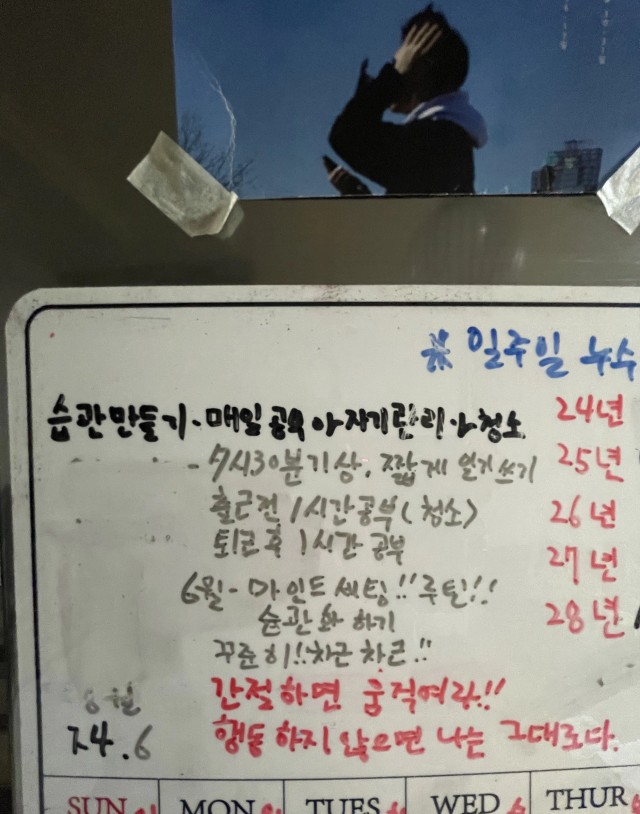 ※ 일주일 뉴수
습관만들기 - 매일 공부 자기관리 청소
24년
- 7시30분기상, 짧게 일기쓰기
25년
출근전 1시간공부(청소)
26년
퇴근후 1시간 공부
27년
6월 - 마인드 셋팅!! 루틴!!
습관화 하기
28년
꾸준히!! 차근차근!!
간절하면 움직여라!!
24.6
행동하지 않으면 나는 그대로다.
SUN MON TUES WED THUR